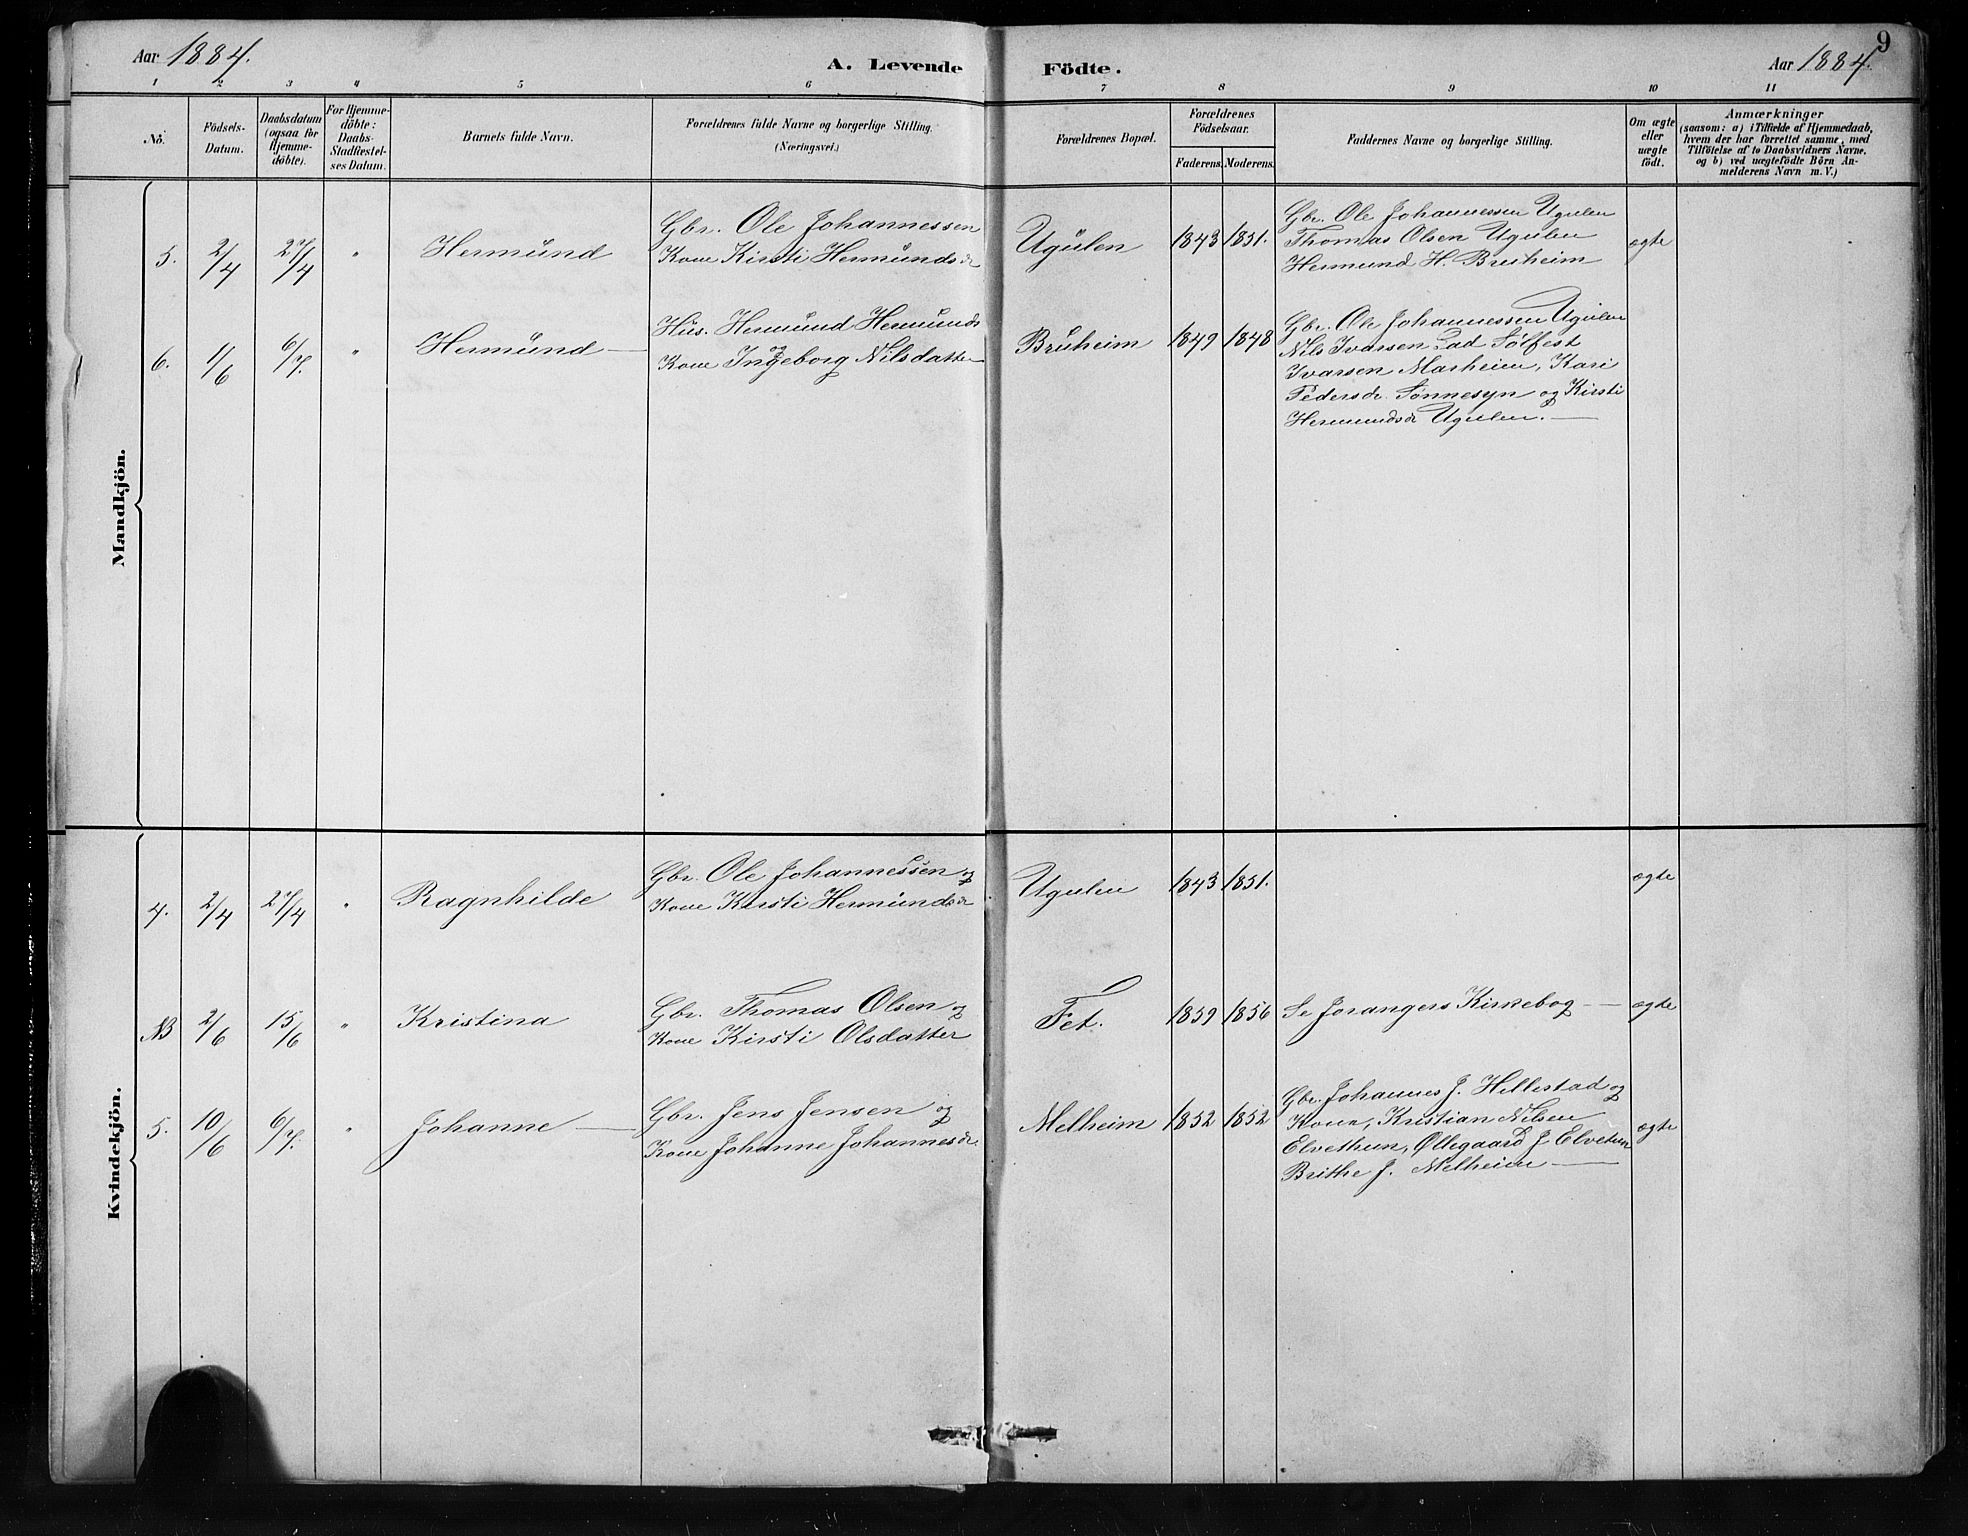 Aar 1884.
A. Levende Födte.
Aar 1884.
9
1 2 3 4 5 6 7 8 9 10 11
No.
Födsels-
Datum.
Daabsdatum
(ogsaa for
Hjemme-
döbte).
For Hjemme-
döbte:
Daabs-
Stadfæstel-
ses Datum.
Barnets fulde Navn.
Forældrenes fulde Navne og borgerlige Stilling.
(Næringsvei.)
Forældrenes Bopæl.
Forældrenes
Födselsaar.
Faderens. Moderens.
Faddernes Navne og borgerlige Stilling.
Om ægte
eller
uægte
födt.
Anmærkninger
(saasom: a) i Tilfælde af Hjemmedaab,
hvem der har forrettet samme, med
Tilföielse af to Daabsvidners Navne,
og b) ved uægtefödte Börn An-
melderens Navn m. V.)
Mandkjön.
5. 2/4 27/4 " Hermünd
Gbr. Ole Johannessen
Kone Kirsti Hermundsdr
Ugülen 1843 1851.
Gbr. Ole Johannessen Ugulen
Thomas Olsen Ugulen
Hermund H. Bruheim
ægte
6. 1/6 6/7. " Hermünd
Hüs. Hermünd Hermunds
og
Kone Ingeborg Nilsdatter
Brüheim 1849 1848
Gbr. Ole Johannessen Ugulen
Nils Ivarsen Sølfest
Ivarsen Marheim, Kari
Pedersdr. Sønnesyn og Kirsti
Hermundsdr Ugulen.
Kvindekjön.
4. 2/4 27/4 " Ragnhilde
Gbr. Ole Johannessen og
Kone Kirsti Hermündsdr
Ugulen 1843 1851.
ægte
NB 2/6 15/6 " Kristina
Gbr. Thomas Olsen og
Kone Kirsti Olsdatter
Fet. 1859 1856
Se Jorangers Kirkebog
ægte
5. 10/6 6/7. " Johanne
Gbr. Jens Jensen og
Kone Johanne Johannesdr
Melheim 1852 1852
Gbr. Johannes J. Hillestad og
Kone, Kristian Nilsen
Elvethun, Ollegaard J Elvetun
Brithe J. Melheim
ægte